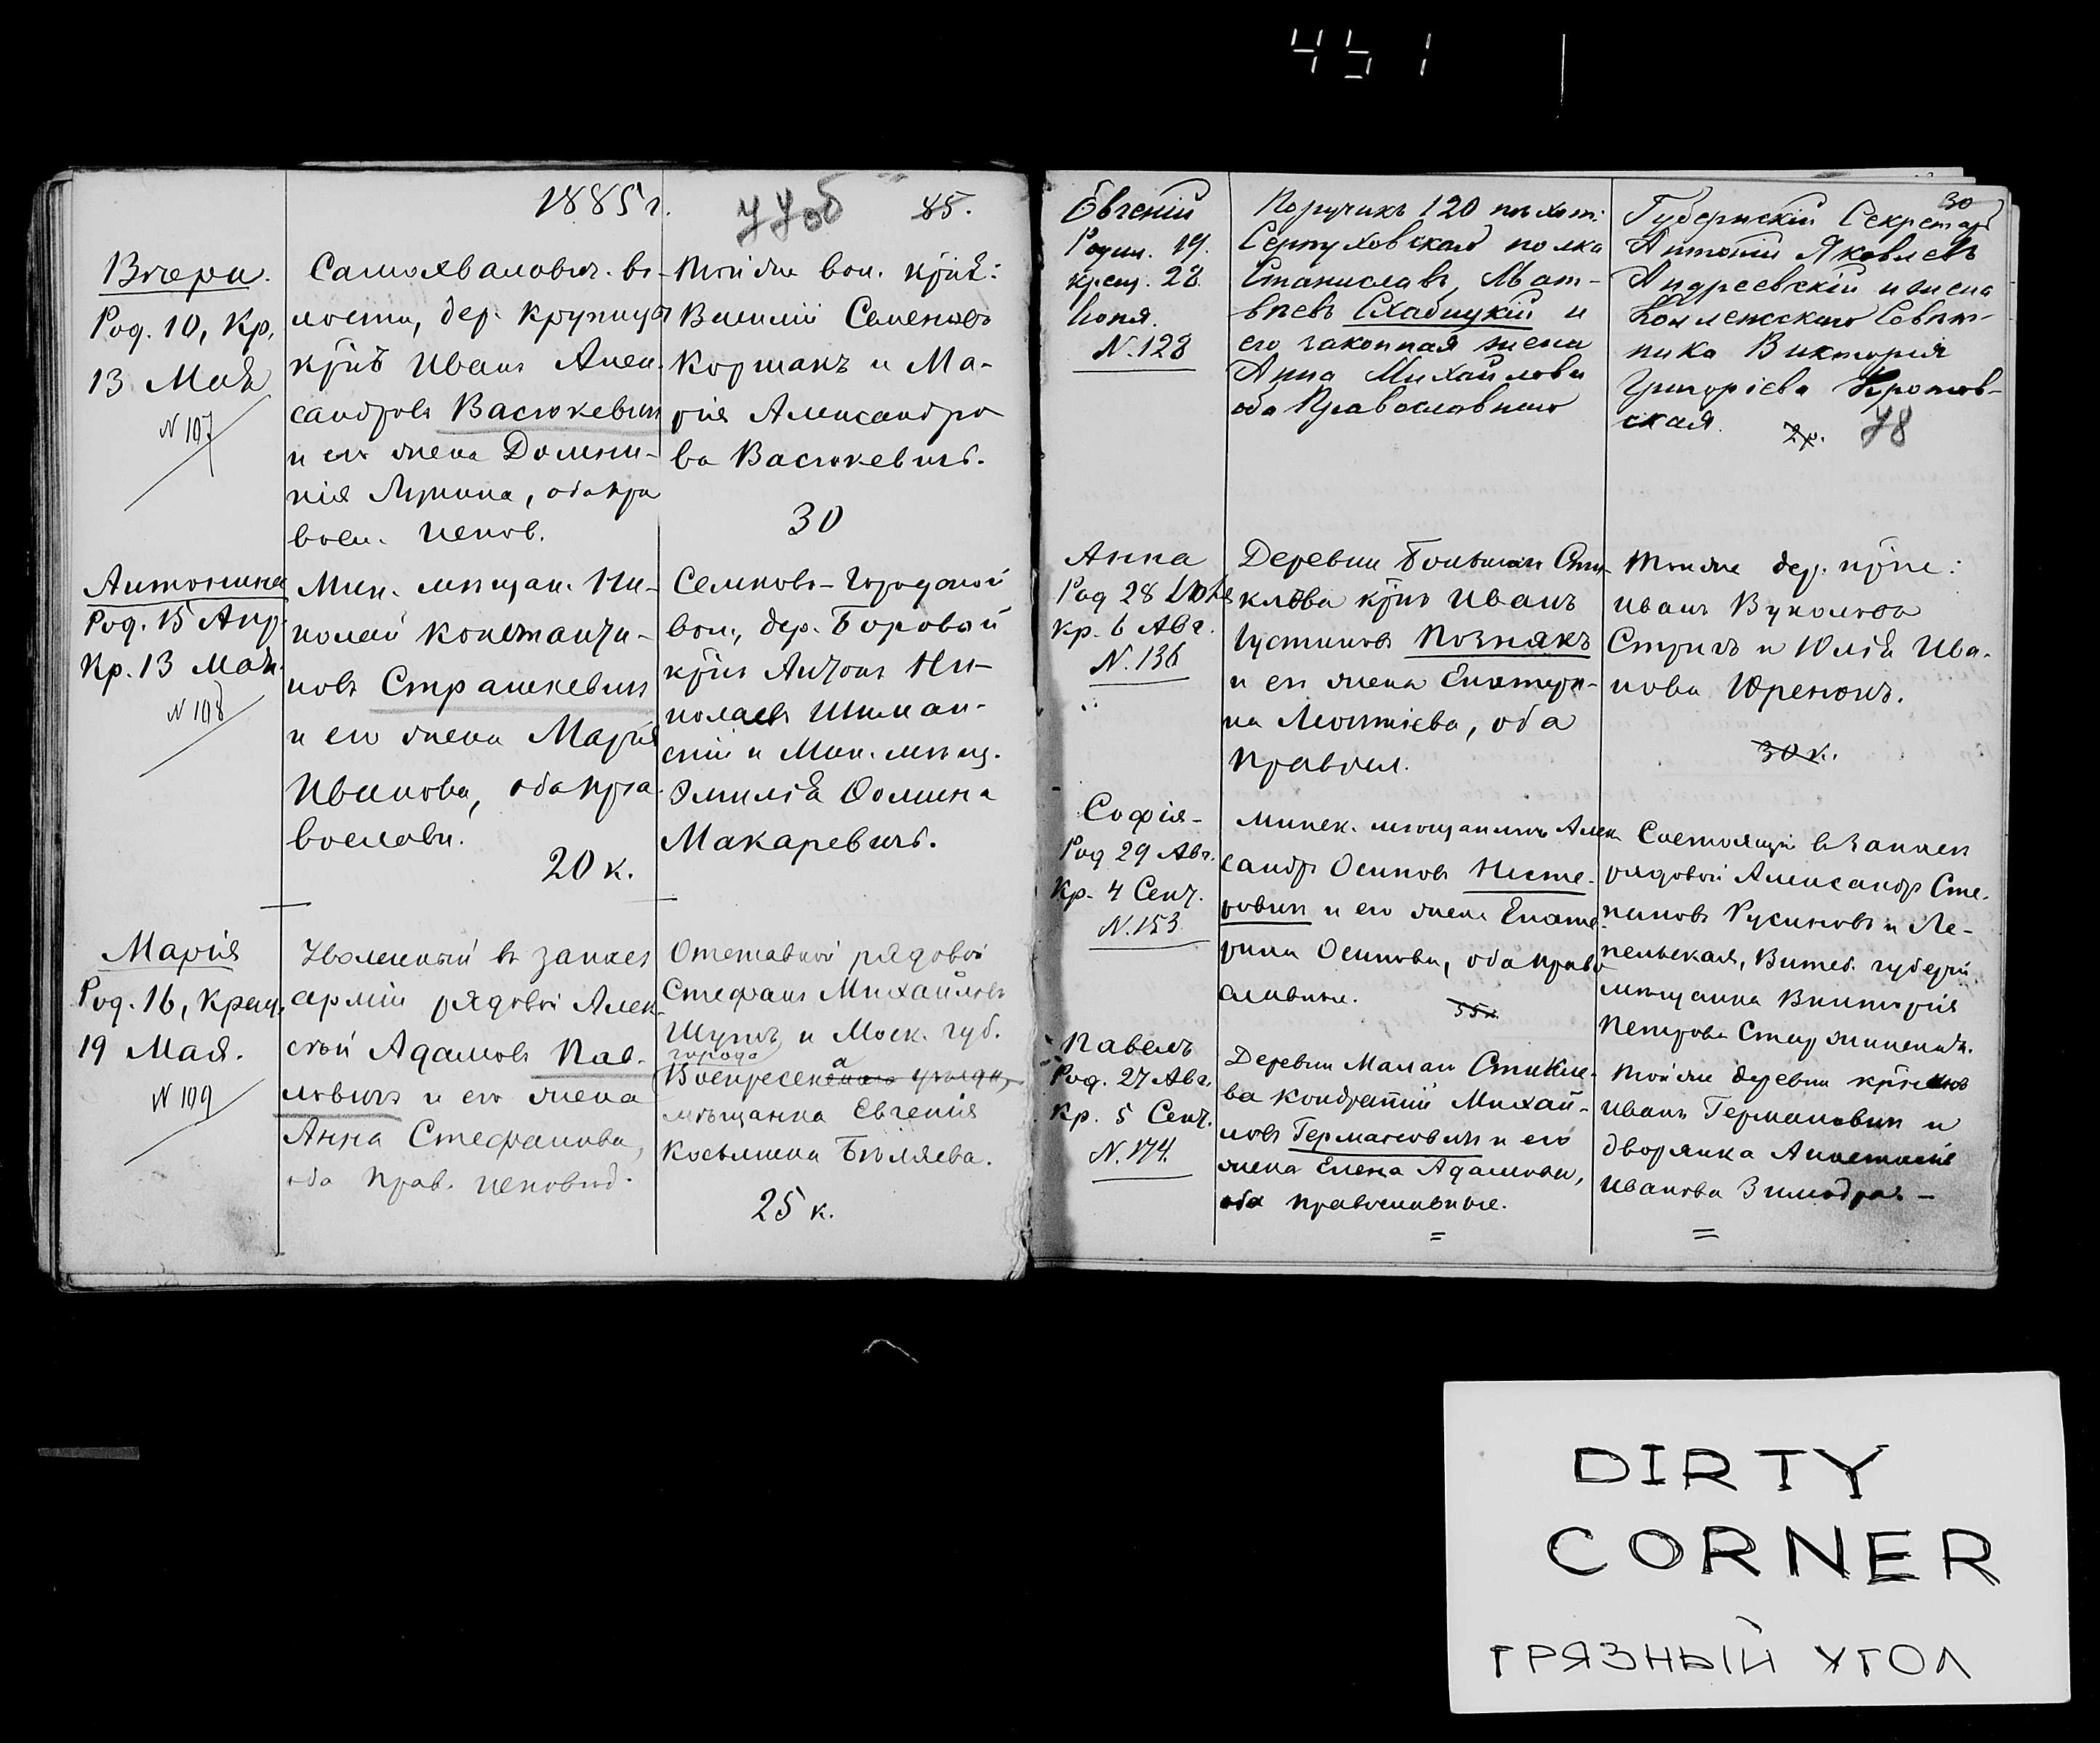 451
1885 г.
77 об
85.
Вѣера.
Род. 10, Кр.
13 Мая
N 107
Самохвалович. во-
лости, дер. Крупицы
кр-нъ Иванъ Алек-
сандровъ Васюкевичъ
и его жена Домни-
кія Лукина, оба пра
восл. испов.
Той же вол. кр-не:
Василій Семеновъ
Коршакъ и Ма-
рія Александро
ва Васюкевичъ.
30
Антонина
Род. 15 Апр.
Кр. 13 Мая.
N 108
Мин. мѣщан. Ни-
колай Константи-
новъ Страшкевичъ
и его жена Марія
Иванова, оба пра-
вославн.
20 к.
Семково-Городской
вол., дер. Боровой
кр-нъ Антонъ Ни-
колаевъ Шиман-
скій и Мин. мѣщ.
Эмилія Ѳомина
Макаревичъ.
Марія
Род. 16, Крещ.
19 Мая.
N 109
Уволенный въ запасъ
арміи рядовой Алек-
сѣй Адамовъ Пав-
ловичъ и его жена
Анна Стефанова,
оба прав. исповѣд.
Отставной рядовой
Стефанъ Михайловъ
Шутъ и Моск. губ.
города
Воскресенска уѣзда,
мѣщанка Евгенія
Косьмина Бѣляева.
25 к.
30
Евгеній
Родил. 19.
крещ. 28.
Іюля.
N. 128
Поручикъ 120 пѣхот:
Серпуховскаго полка
Станиславъ Мат-
вѣевъ Схабицкій и
его законная жена
Анна Михайлова
оба Православнаго
Губернскій Секретарь
Антоній Яковлевъ
Андреевскій и жена
Коллежскаго Совѣт-
ника Викторія
Григоріева Кротов-
ская.
2 р.
78
Анна
Род 28 Іюля
кр. 6 Авг.
N. 136
Деревни Большая Сти-
клева кр-нъ Иванъ
Іустиновъ Познякъ
и его жена Екатери-
на Леонтіева, оба
правосл.
Той же дер. кр-не:
Иванъ Вуколовъ
Стригъ и Юлія Ива-
нова Юренюкъ.
30 к.
Софія-
Род 29 Авг.
Кр. 4 Сент.
N. 153
Минск. мѣщанинъ Алек
сандръ Осиповъ Несте-
ровичъ и его жена Екате-
рина Осипова, оба право
славные.
35 к.
Состоящій въ запасѣ
рядовой Александръ Сте-
пановъ Русиновъ и Ле-
пельская, Витеб. губерніи
мѣщанка Викторія
Петрова
Павелъ
Род. 27 Авг.
Кр. 5 Сент.
N. 174.
Деревни Малая Стикле-
ва Кондратій Михай-
ловъ Германовичъ и его
жена Елена Адамова,
оба православные.
=
Той же деревни кр-нинъ
Иванъ Германовичъ и
дворянка Анастасія
Иванова
=
DIRTY
CORNER
ГРЯЗНЫЙ УГОЛ